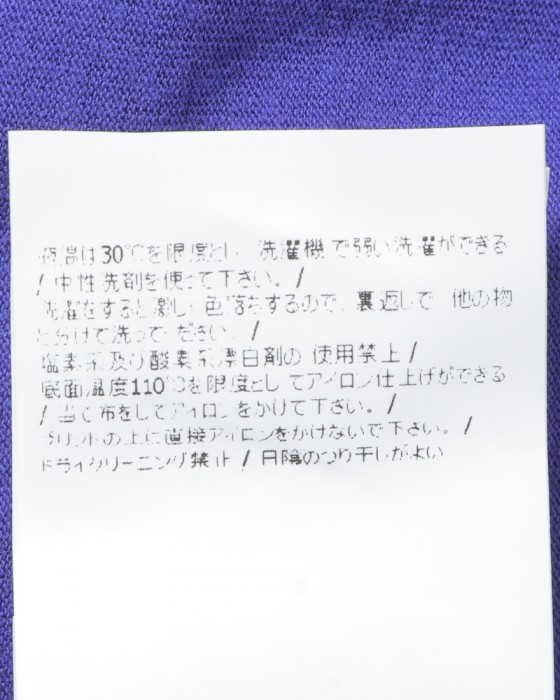 液温は30℃を限度とし 洗濯機で弱い洗濯ができる
/ 中性洗剤を使って下さい。/
洗濯をすると激しく色落ちするので、裏返しで 他の物
と分けて洗って下ださい。/
塩素系及び酸素系漂白剤の使用禁止 /
底面温度110℃を限度としてアイロン仕上げができる
/ 当て布をしてアイロンをかけて下さい。/
プリントの上に直接アイロンをかけないで下さい。/
ドライクリーニング禁止 / 日陰のつり干しがよい